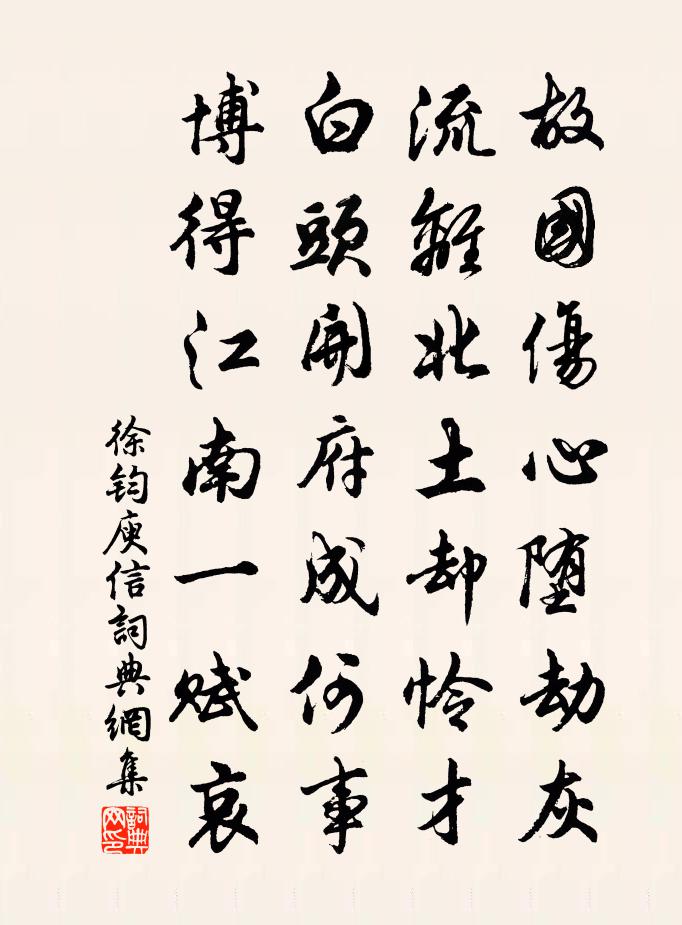 故國傷心堕劫灰
流離北土却怜才
白頭開府成何事
博得江南一賦哀
徐鈞庾信詞典網集
詞典网印